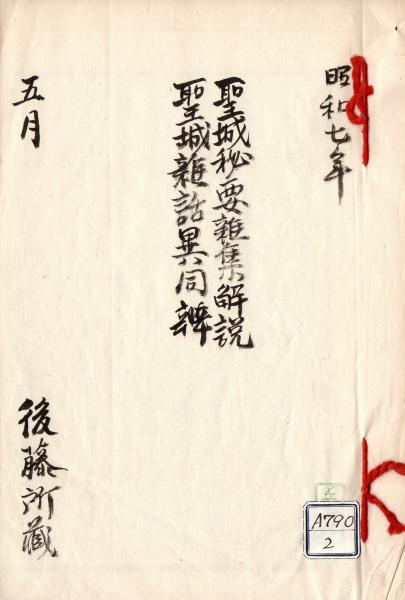 昭和七年
聖城秘要雑集解説
聖城雑話異同辨
五月
後藤所蔵
A790
2